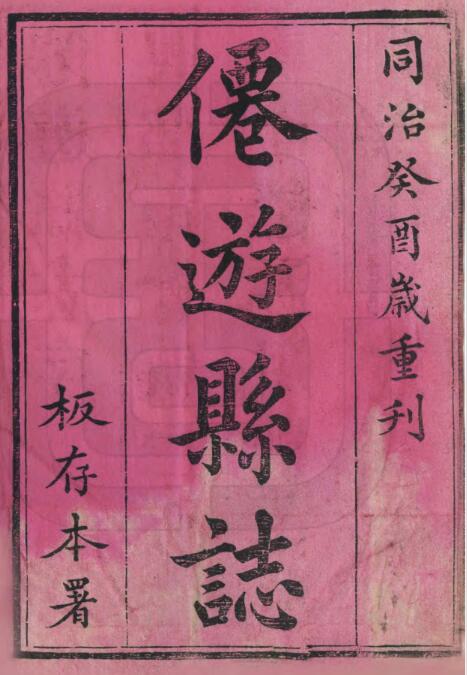 同治癸酉歲重刋
僊遊縣誌
板存本署